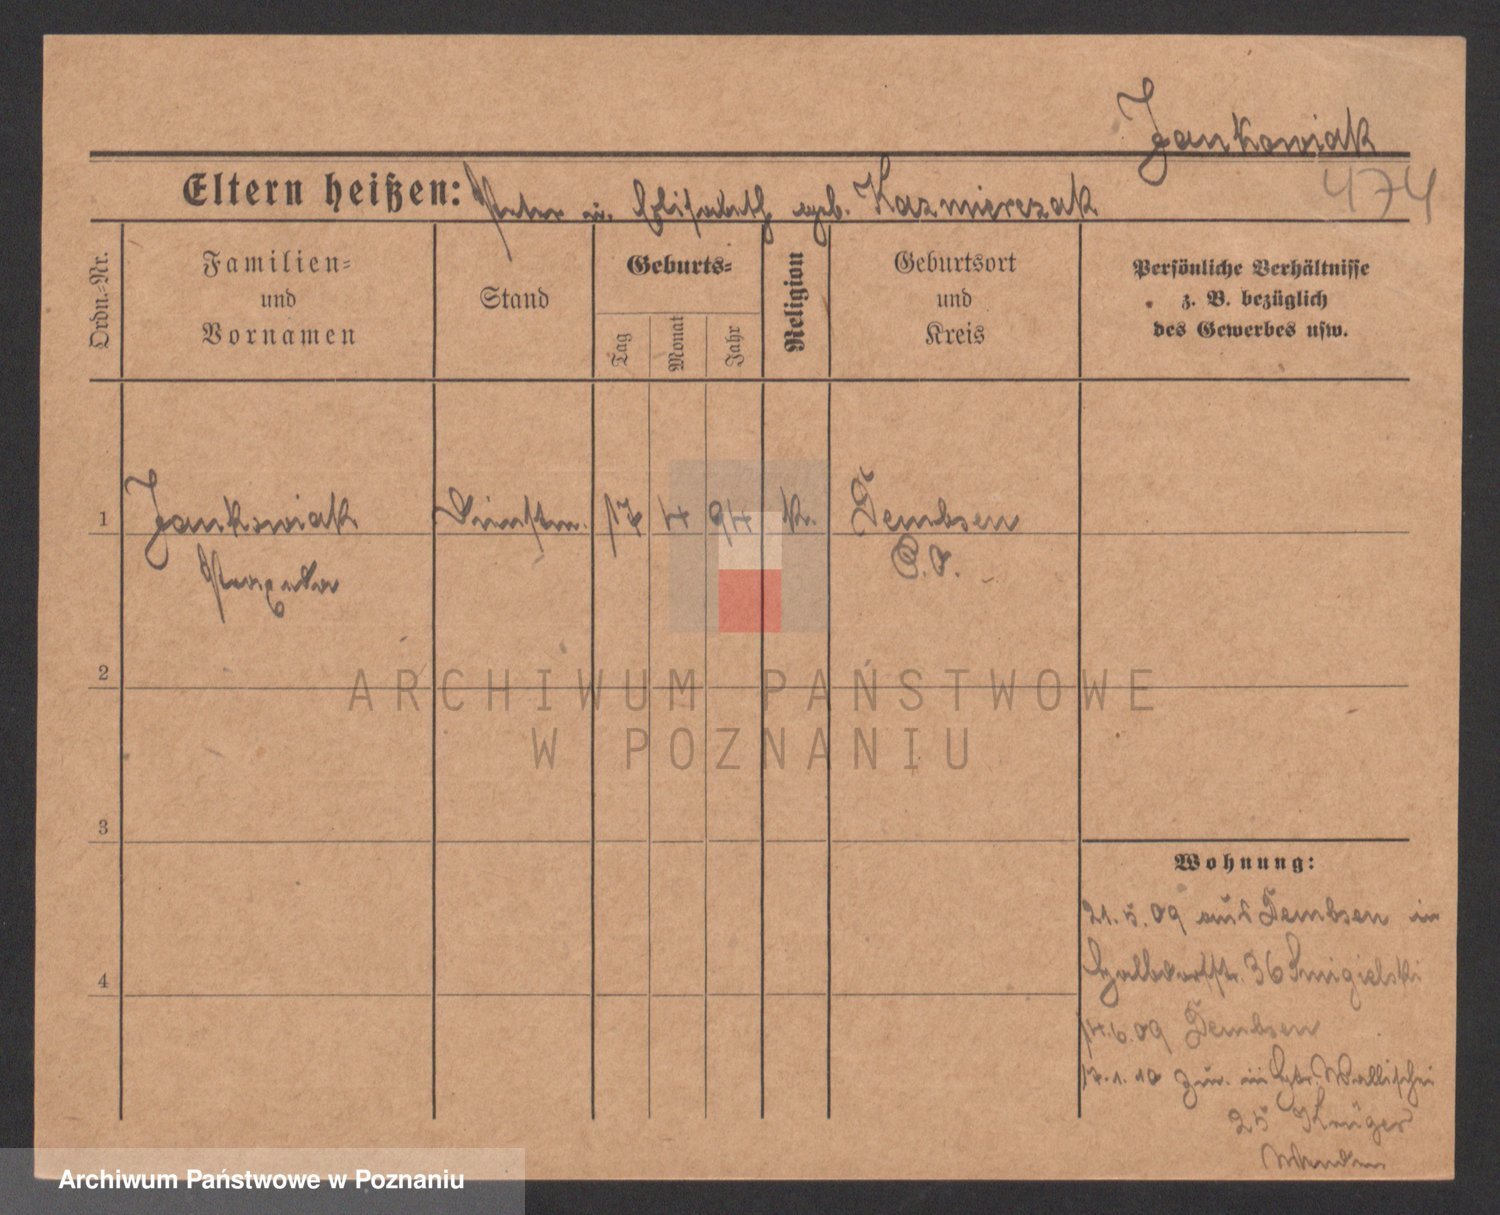 Jankowiak
474
Eltern heißen: Peter u. Elisabeth geb. Kazmierczak
Ordn.-Nr.
Familien-
und
Vornamen
Stand
Geburts-
Tag
Monat
Jahr
Religion
Geburtsort
und
Kreis
Persönliche Verhältnisse
z. B. bezüglich
des Gewerbes usw.
1 Jankowiak 17 4 94 k. Dembsen
Praxeda P. O.
2
3
4
ARCHIWUM PAŃSTWOWE
W POZNANIU
Wohnung:
21.5.09 aus Dembsen in
36 Smigielski
14.6.09 Dembsen
17.1.10 zur. in Wallischei
25 Krüger
Archiwum Państwowe w Poznaniu